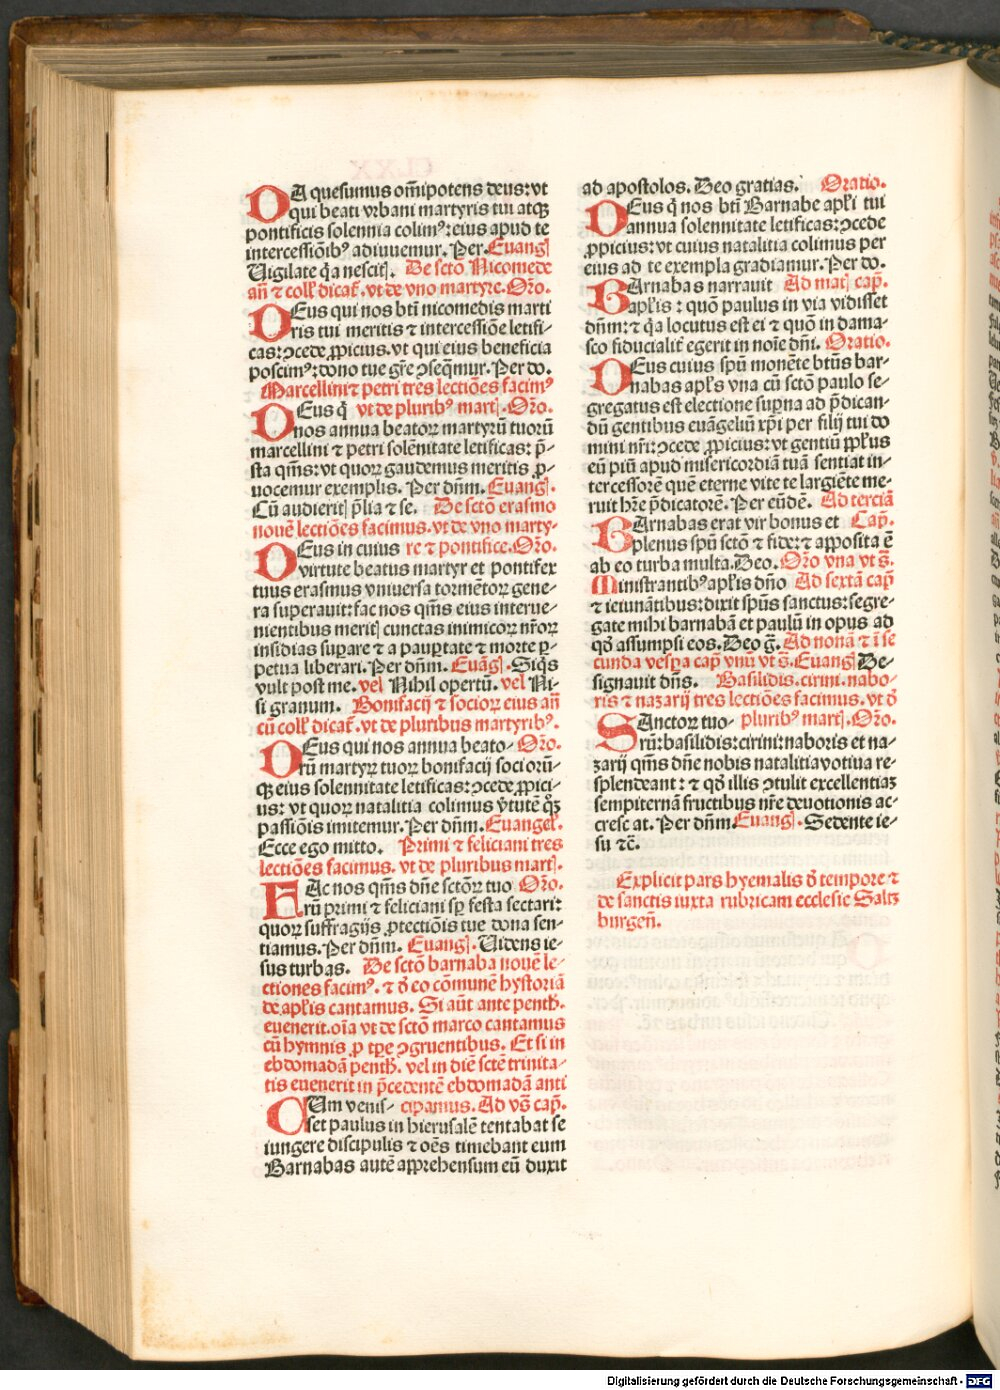 DA quesumus om̄ipotens deus: vt
qui beati vrbani martyris tui atqꝫ
pontificis solennia colim⁹: eius apud te
intercessiōib⁹ adiuuemur. Per. Euangꝭ
Uigilate q̄a nescitꝭ. De sctō Nicomede
an̄ ⁊ coll̄ dicat̄. vt de vno martyre. Or̄o.
DEus qui nos btī nicomedis marti
ris tui meritis ⁊ intercessiōe letifi-
cas: ꝯcede ꝓpicius. vt qui eius beneficia
poscim⁹: dono tue gr̄e ꝯseq̄mur. Per do.
Marcellini ⁊ petri tres lectiōes facim⁹
DEus q̄ vt de plurib⁹ martꝭ. Or̄o.
nos annua beatoꝝ martyrū tuorū
marcellini ⁊ petri solēnitate letificas: p̄-
sta q̄ms: vt quoꝝ gaudemus meritis ꝓ-
uocemur exemplis. Per dn̄m. Euangꝭ.
Cū audieritꝭ p̄lia ⁊ se. De sctō erasmo
nouē lectiōes facimus. vt de vno marty-
DEus in cuius re ⁊ pontifice. Or̄o.
virtute beatus martyr et pontifex
tuus erasmus vniuersa tormētoꝝ gene-
ra superauit: fac nos q̄ms eius interue-
nientibus meritꝭ cunctas inimicoꝝ nr̄oꝝ
insidias suꝑare ⁊ a pauꝑtate ⁊ morte ꝑ-
petua liberari. Per dn̄m. Euāgꝭ. Siq̄s
vult post me. vel Nihil opertū. vel Ni-
si granum. Bonifacij ⁊ socioꝝ eius an̄
cū coll̄ dicat̄. vt de pluribus martyrib⁹.
DEus qui nos annua beato- Or̄o.
rū martyꝝ tuoꝝ bonifacij sociorū-
qꝫ eius solennitate letificas: ꝯcede ꝓpici-
us: vt quoꝝ natalitia colimus v̄tutē qͦꝫ
passiōis imitemur. Per dn̄m. Euangel̄.
Ecce ego mitto. Primi ⁊ feliciani tres
lectiōes facimus. vt de pluribus martꝭ.
FAc nos q̄ms dn̄e sctōꝝ tuo Or̄o.
rū primi ⁊ feliciani sꝑ festa sectari:
quoꝝ suffragijs ꝓtectiōis tue dona sen-
tiamus. Per dn̄m. Euangꝭ. Uidens ie-
sus turbas. De sctō barnaba nouē le-
ctiones facim⁹. ⁊ d̄ eo cōmunē hystoriā
de apl̄is cantamus. Si aūt ante penth̄.
euenerit. oīa vt de sctō marco cantamus
cū hymnis ꝓ tꝑe ꝯgruentibus. Et si in
ebdomadā penth̄. vel in diē sctē trinita-
tis euenerit in p̄cedentē ebdomadā anti
CUm venis- cipamus. Ad vs̄ cap̄.
set paulus in hierusalē tentabat se
iungere discipulis ⁊ oēs timebant eum
Barnabas autē apprehensum eū duxit
ad apostolos. Deo gratias. Oratio.
DEus q̄ nos btī Barnabe apl̄i tui
annua solennitate letificas: ꝯcede
ꝓpicius: vt cuius natalitia colimus per
eius ad te exempla gradiamur. Per do.
BArnabas narrauit Ad matꝭ cap̄.
apl̄is: quō paulus in via vidisset
dn̄m: ⁊ q̄a locutus est ei ⁊ quō in dama-
sco fiducialit̄ egerit in noīe dn̄i. Oratio.
DEus cuius spū monēte btūs bar-
nabas apl̄s vna cū sctō paulo se-
gregatus est electione suꝑna ad p̄dican-
dū gentibus euāgeliū xp̄i per filij tui do
mini nr̄i: ꝯcede ꝓpicius: vt gentiū ppl̄us
eū piū apud misericordiā tuā sentiat in-
tercessorē quē eterne vite te largiēte me-
ruit hr̄e p̄dicatorē. Per eūdē. Ad terciā
BArnabas erat vir bonus et Cap̄.
plenus spū sctō ⁊ fide: ⁊ apposita ē
ab eo turba multa. Deo. Or̄o vna vt s̄.
Ministrantib⁹ apl̄is dn̄o Ad sextā cap̄
⁊ ieiunātibus: dixit spūs sanctus: segre-
gate mihi barnabā et paulū in opus ad
qd̄ assumpsi eos. Deo ḡ. Ad nonā ⁊ ī se
cunda vesꝑa cap̄ vnū vt s̄. Euangꝭ De-
signauit dn̄s. Basilidis. cirini. nabo-
ris ⁊ nazarij tres lectiōes facimus. vt d̄
SAnctoꝝ tuo- plurib⁹ martꝭ. Or̄o.
rū: basilidis: cirini: naboris et na-
zarij q̄ms dn̄e nobis natalitia votiua re-
splendeant: ⁊ qd̄ illis ꝯtulit excellentia:
sempiternā fructibus nr̄e deuotionis ac-
crescat. Per dn̄m. Euangꝭ. Sedente ie-
su ⁊c̄.
Explicit pars hyemalis d̄ tempore ⁊
de sanctis iuxta rubricam ecclesie Saltz
burgen̄.
Digitalisierung gefördert durch die Deutsche Forschungsgemeinschaft - DFG